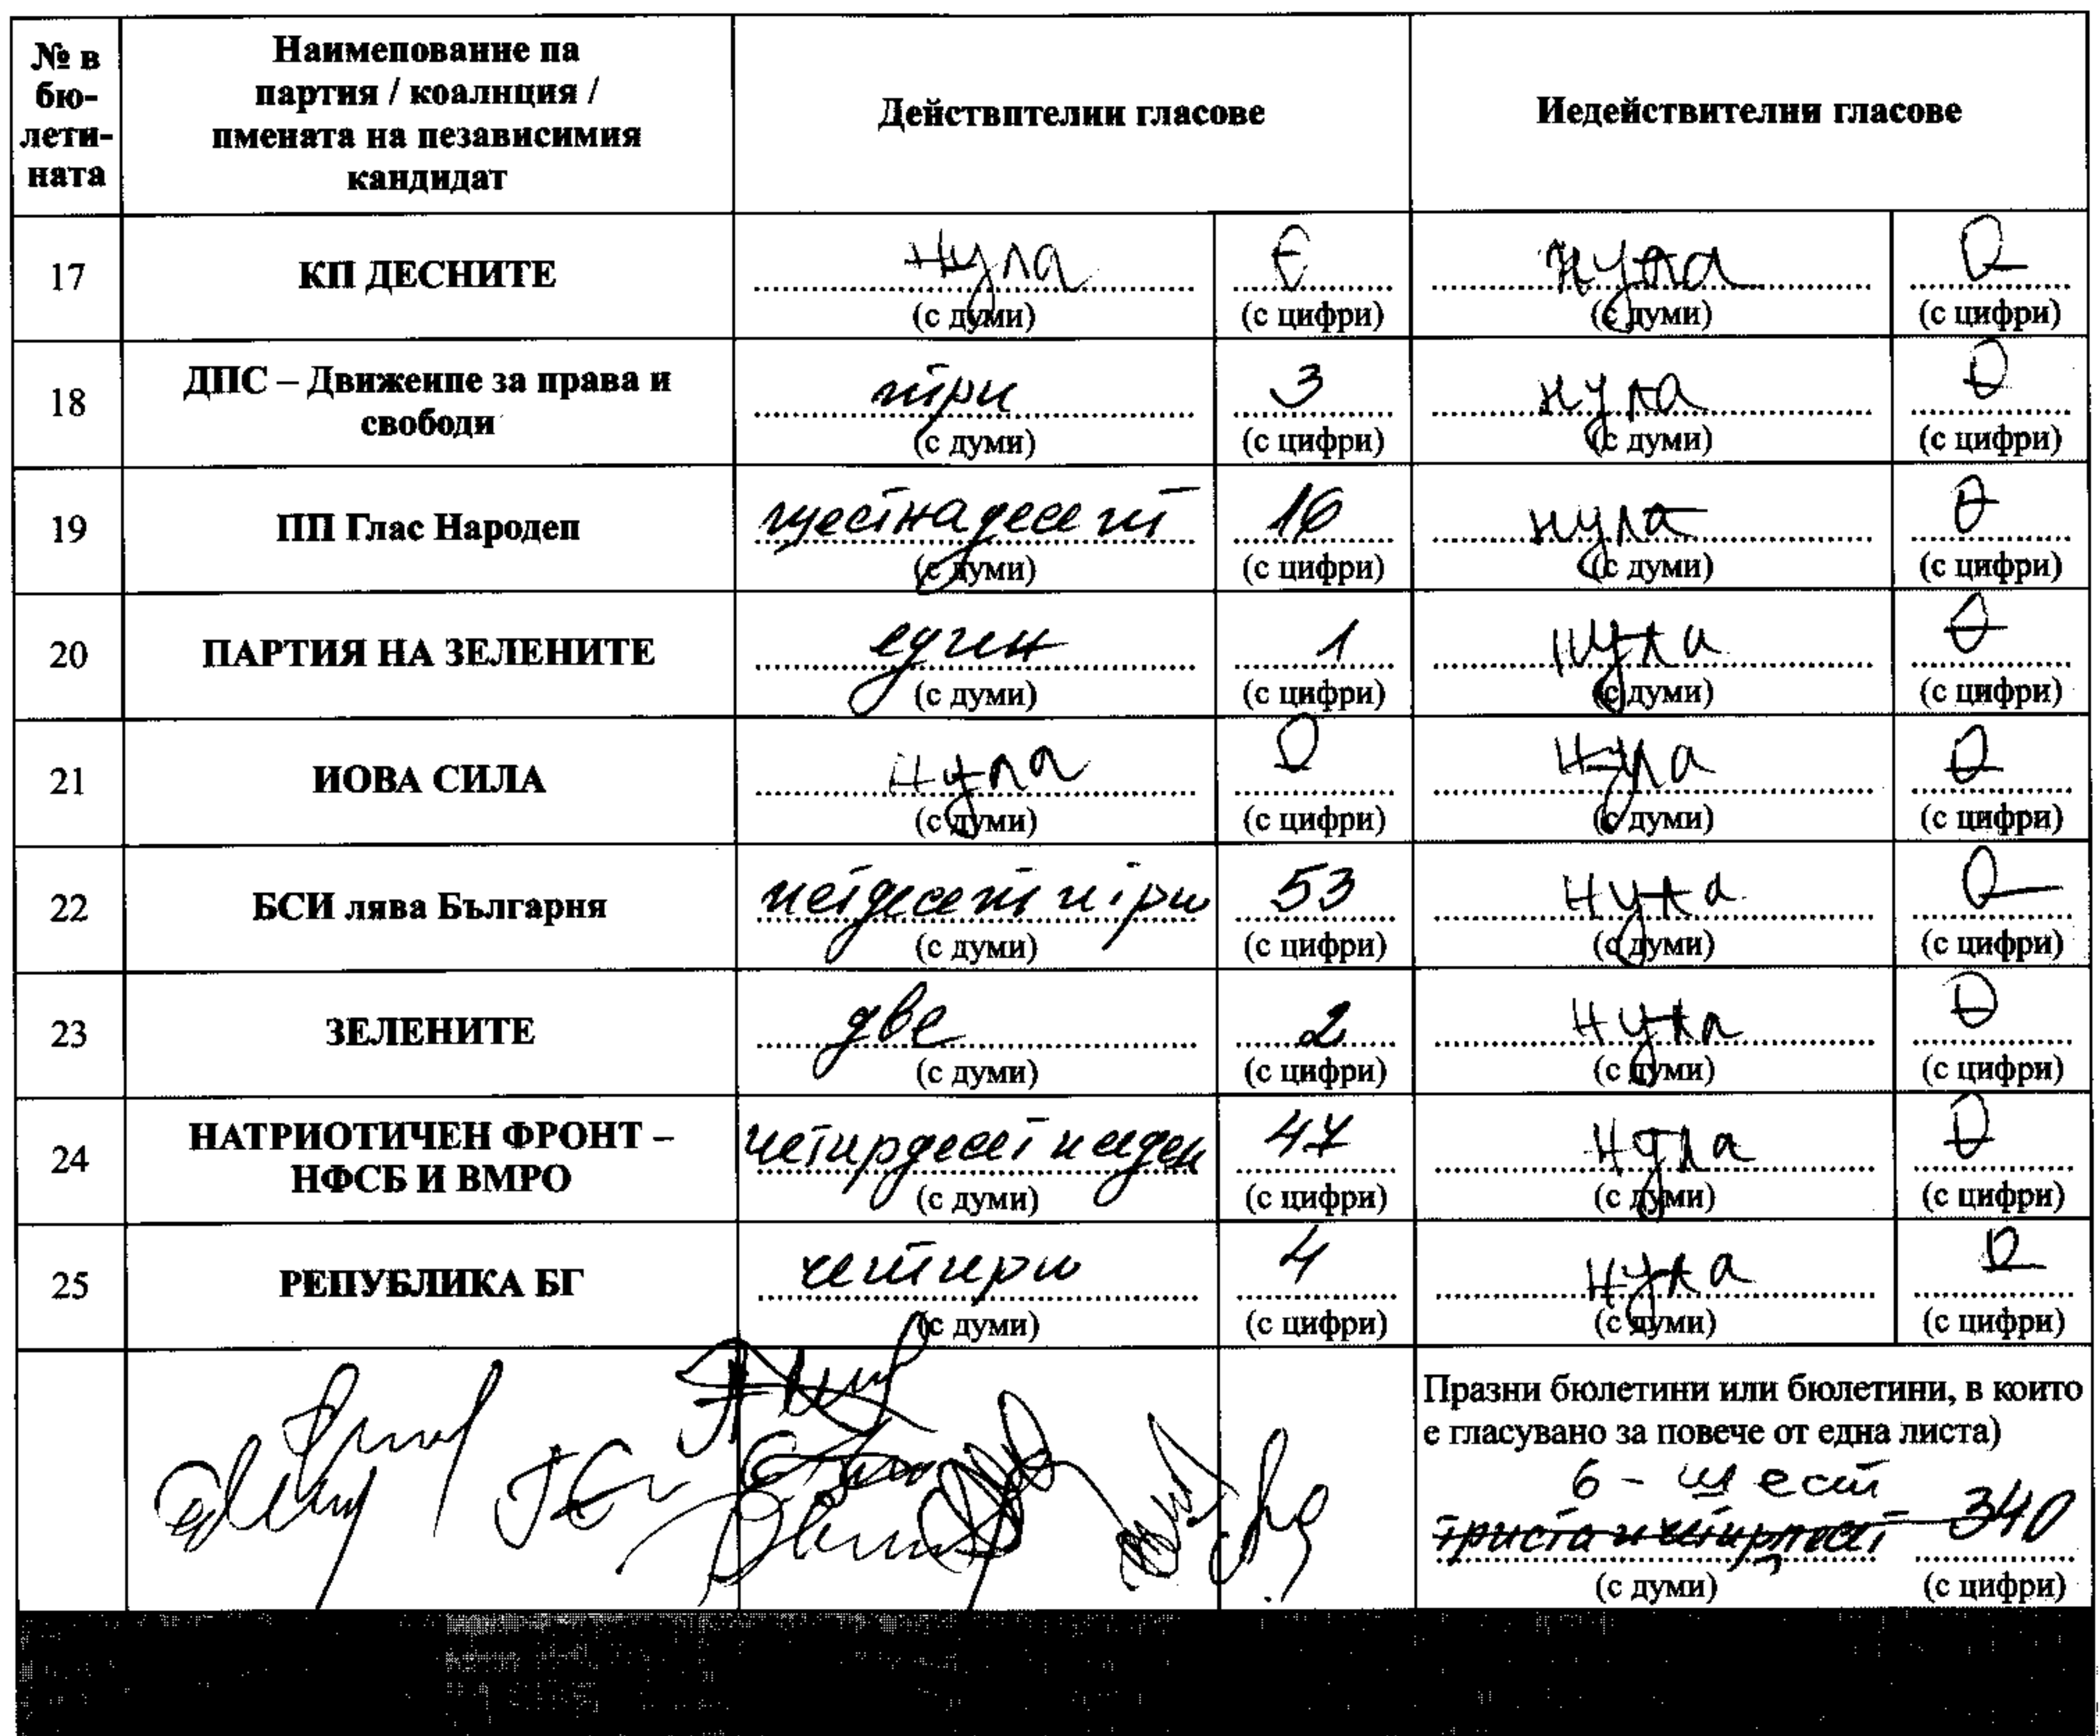 № в
бю-
лети-
ната
Наимепованне па
партия / коалнция /
пмената на пезависимия
кандидат
Действптелии гласове
Иедействителни гласове
17 КП ДЕСНИТЕ нула 0 нула 0
(с думи) (с цифри) (с думи) (с цифри)
18 ДПС – Движеипе за права и
свободи три 3 нула 0
(с думи) (с цифри) (с думи) (с цифри)
19 ПП Глас Народеп шестнадесет 16 нула 0
(с думи) (с цифри) (с думи) (с цифри)
20 ПАРТИЯ НА ЗЕЛЕНИТЕ един 1 нула 0
(с думи) (с цифри) (с думи) (с цифри)
21 ИОВА СИЛА нула 0 нула 0
(с думи) (с цифри) (с думи) (с цифри)
22 БСИ лява Българня петдесет и три 53 нула 0
(с думи) (с цифри) (с думи) (с цифри)
23 ЗЕЛЕНИТЕ две 2 нула 0
(с думи) (с цифри) (с думи) (с цифри)
24 НАТРИОТИЧЕН ФРОНТ –
НФСБ И ВМРО четирдесет и седем 47 нула 0
(с думи) (с цифри) (с думи) (с цифри)
25 РЕПУБЛИКА БГ четири 4 нула 0
(с думи) (с цифри) (с думи) (с цифри)
Празни бюлетини или бюлетини, в които
е гласувано за повече от една листа)
6 - шест
триста и четирдесет 340
(с думи) (с цифри)